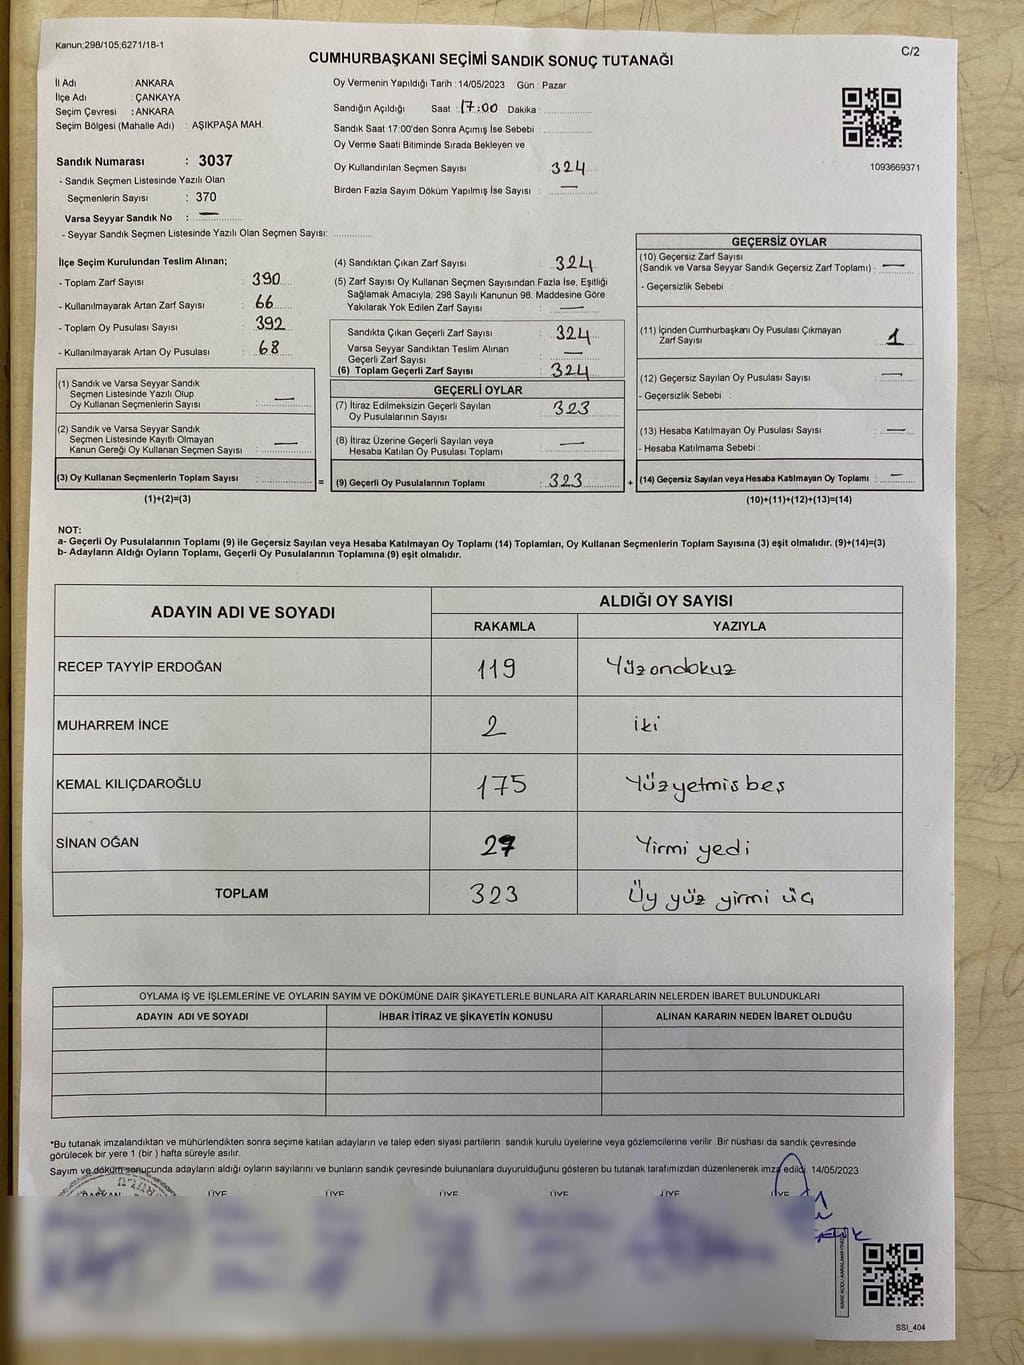 Kanun;298/105;6271/18-1
C/2
CUMHURBAŞKANI SEÇİMİ SANDIK SONUÇ TUTANAĞI
İl Adı : ANKARA
İlçe Adı : ÇANKAYA
Seçim Çevresi : ANKARA
Seçim Bölgesi (Mahalle Adı) : AŞIKPAŞA MAH.
Sandık Numarası : 3037
- Sandık Seçmen Listesinde Yazılı Olan
Seçmenlerin Sayısı : 370
Varsa Seyyar Sandık No : —
- Seyyar Sandık Seçmen Listesinde Yazılı Olan Seçmen Sayısı: ............
Oy Vermenin Yapıldığı Tarih : 14/05/2023 Gün : Pazar
Sandığın Açıldığı Saat : 17:00 Dakika : ............
Sandık Saat 17:00'den Sonra Açımış İse Sebebi : ............
Oy Verme Saati Bitiminde Sırada Bekleyen ve
Oy Kullandırılan Seçmen Sayısı : 324
Birden Fazla Sayım Döküm Yapılmış İse Sayısı : —
1093669371
İlçe Seçim Kurulundan Teslim Alınan;
- Toplam Zarf Sayısı : 390
- Kullanılmayarak Artan Zarf Sayısı : 66
- Toplam Oy Pusulası Sayısı : 392
- Kullanılmayarak Artan Oy Pusulası : 68
(1) Sandık ve Varsa Seyyar Sandık
Seçmen Listesinde Yazılı Olup
Oy Kullanan Seçmenlerin Sayısı : —
(2) Sandık ve Varsa Seyyar Sandık
Seçmen Listesinde Kayıtlı Olmayan
Kanun Gereği Oy Kullanan Seçmen Sayısı : —
(3) Oy Kullanan Seçmenlerin Toplam Sayısı : ............ =
(1)+(2)=(3)
(4) Sandıktan Çıkan Zarf Sayısı : 324
(5) Zarf Sayısı Oy Kullanan Seçmen Sayısından Fazla İse, Eşitliği
Sağlamak Amacıyla; 298 Sayılı Kanunun 98. Maddesine Göre
Yakılarak Yok Edilen Zarf Sayısı : —
Sandıkta Çıkan Geçerli Zarf Sayısı : 324
Varsa Seyyar Sandıktan Teslim Alınan
Geçerli Zarf Sayısı : —
(6) Toplam Geçerli Zarf Sayısı : 324
GEÇERLİ OYLAR
(7) İtiraz Edilmeksizin Geçerli Sayılan
Oy Pusulalarının Sayısı : 323
(8) İtiraz Üzerine Geçerli Sayılan veya
Hesaba Katılan Oy Pusulası Toplamı : —
(9) Geçerli Oy Pusulalarının Toplamı : 323 +
GEÇERSİZ OYLAR
(10) Geçersiz Zarf Sayısı
(Sandık ve Varsa Seyyar Sandık Geçersiz Zarf Toplamı) : —
- Geçersizlik Sebebi :
(11) İçinden Cumhurbaşkanı Oy Pusulası Çıkmayan
Zarf Sayısı : 1
(12) Geçersiz Sayılan Oy Pusulası Sayısı : —
- Geçersizlik Sebebi :
(13) Hesaba Katılmayan Oy Pusulası Sayısı : —
- Hesaba Katılmama Sebebi :
(14) Geçersiz Sayılan veya Hesaba Katılmayan Oy Toplamı : —
(10)+(11)+(12)+(13)=(14)
NOT:
a- Geçerli Oy Pusulalarının Toplamı (9) ile Geçersiz Sayılan veya Hesaba Katılmayan Oy Toplamı (14) Toplamları, Oy Kullanan Seçmenlerin Toplam Sayısına (3) eşit olmalıdır. (9)+(14)=(3)
b- Adayların Aldığı Oyların Toplamı, Geçerli Oy Pusulalarının Toplamına (9) eşit olmalıdır.
ADAYIN ADI VE SOYADI
ALDIĞI OY SAYISI
RAKAMLA YAZIYLA
RECEP TAYYİP ERDOĞAN 119 Yüzondokuz
MUHARREM İNCE 2 iki
KEMAL KILIÇDAROĞLU 175 Yüzyetmis beş
SİNAN OĞAN 27 Yirmi yedi
TOPLAM 323 Üy yüz yirmi üç
OYLAMA İŞ VE İŞLEMLERİNE VE OYLARIN SAYIM VE DÖKÜMÜNE DAİR ŞİKAYETLERLE BUNLARA AİT KARARLARIN NELERDEN İBARET BULUNDUKLARI
ADAYIN ADI VE SOYADI İHBAR İTİRAZ VE ŞİKAYETİN KONUSU ALINAN KARARIN NEDEN İBARET OLDUĞU
*Bu tutanak imzalandıktan ve mühürlendikten sonra seçime katılan adayların ve talep eden siyasi partilerin sandık kurulu üyelerine veya gözlemcilerine verilir. Bir nüshası da sandık çevresinde
görülecek bir yere 1 (bir) hafta süreyle asılır.
Sayım ve döküm sonuçunda adayların aldığı oyların sayılarını ve bunların sandık çevresinde bulunanlara duyurulduğunu gösteren bu tutanak tarafımızdan düzenlenerek imza edildi. 14/05/2023
BAŞKAN ÜYE ÜYE ÜYE ÜYE ÜYE ÜYE
SSI_404